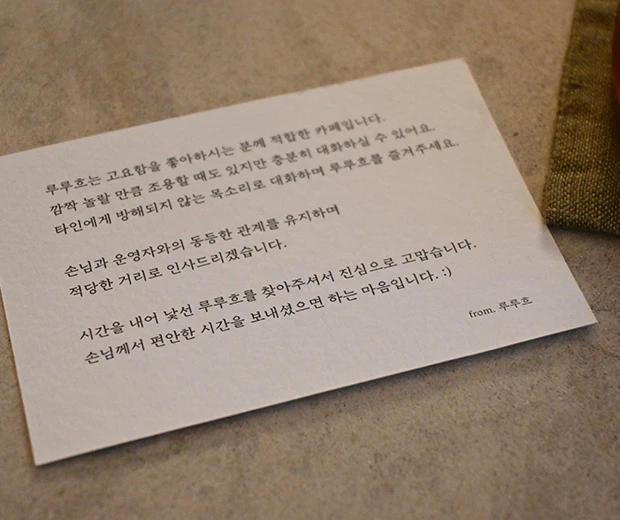 루루흐는 고요함을 좋아하시는 분께 적합한 카페입니다.
깜짝 놀랄 만큼 조용할 때도 있지만 충분히 대화하실 수 있어요.
타인에게 방해되지 않는 목소리로 대화하며 루루흐를 즐겨주세요.
손님과 운영자와의 동등한 관계를 유지하며
적당한 거리로 인사드리겠습니다.
시간을 내어 낯선 루루흐를 찾아주셔서 진심으로 고맙습니다.
손님께서 편안한 시간을 보내셨으면 하는 마음입니다. :)
from. 루루흐